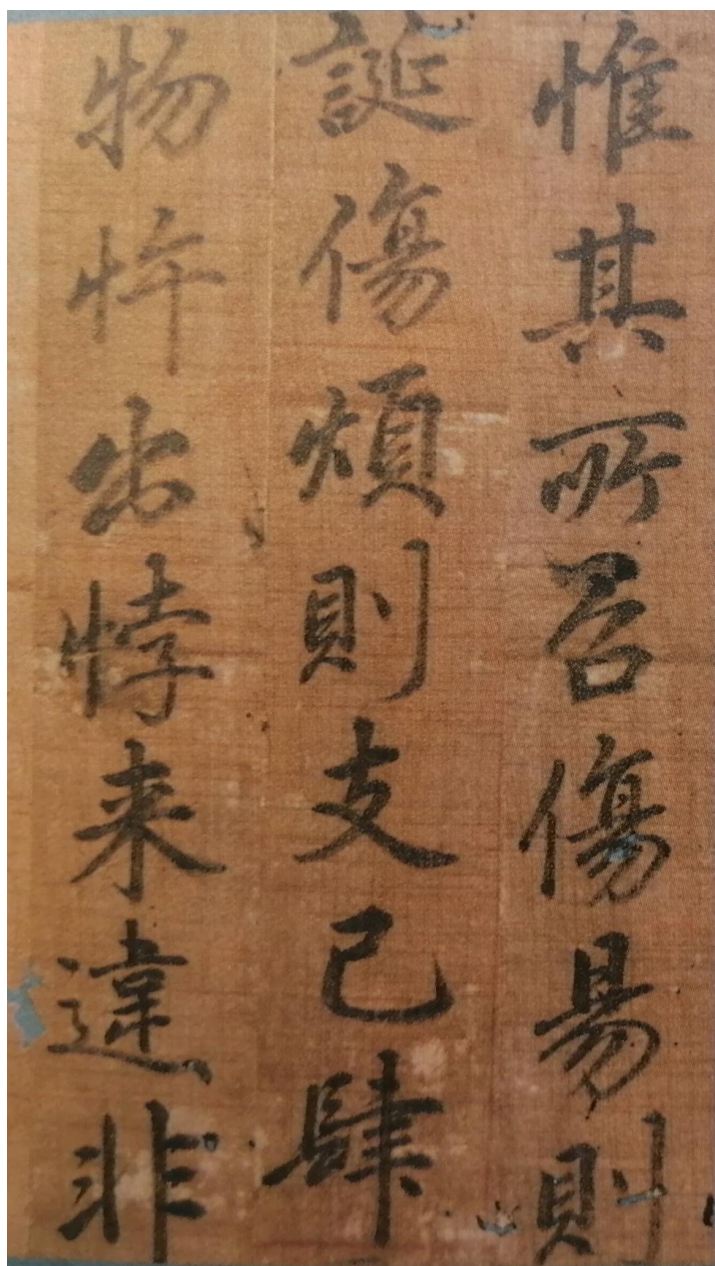 惟其所召傷昜則
誕傷煩則支己肆
物忤出悖来違非